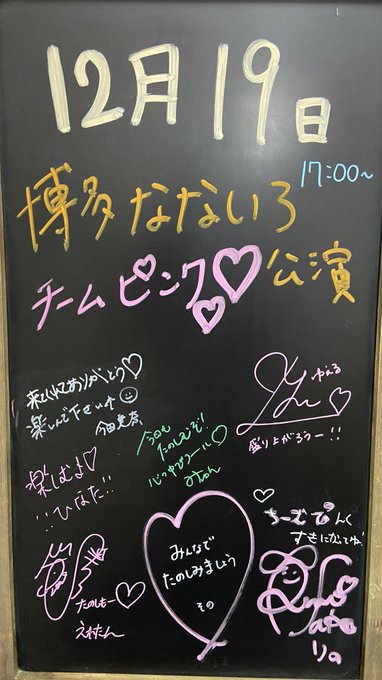 12月19日
17:00~
博多なないろ
チームピンク♡公演
来てくれてありがとう♡
楽しんで下さいね
今田美奈
ゆえる
盛り上がろうー!!
今日も
たのしむぞ!
心の中でコール♡
みゅん
楽しむよ♡
ひなた!!
ちーむぴんく
すきになってね♡
みんなで
たのしみましょう
その
たのしもー♡
えれたん
りの